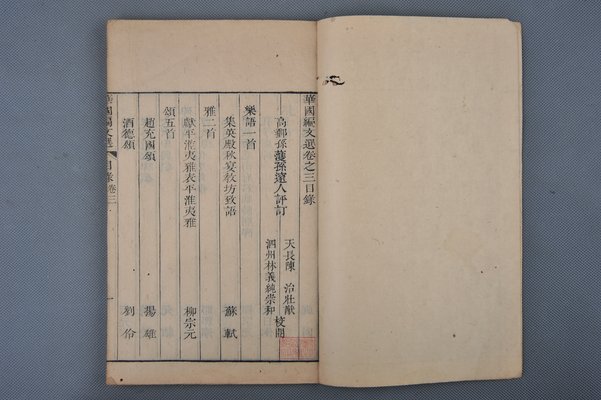 華國編文選卷之三目錄
高郵孫濩孫邃人評訂
天長陳 治壯猷
泗州林義純崇和 校閱
樂語一首
集英殿秋宴教坊致語 蘇軾
雅二首
獻平淮夷雅表平淮夷雅 柳宗元
頌五首
趙充國頌 揚雄
酒德頌 劉伶
華國編文選 目錄卷三 一